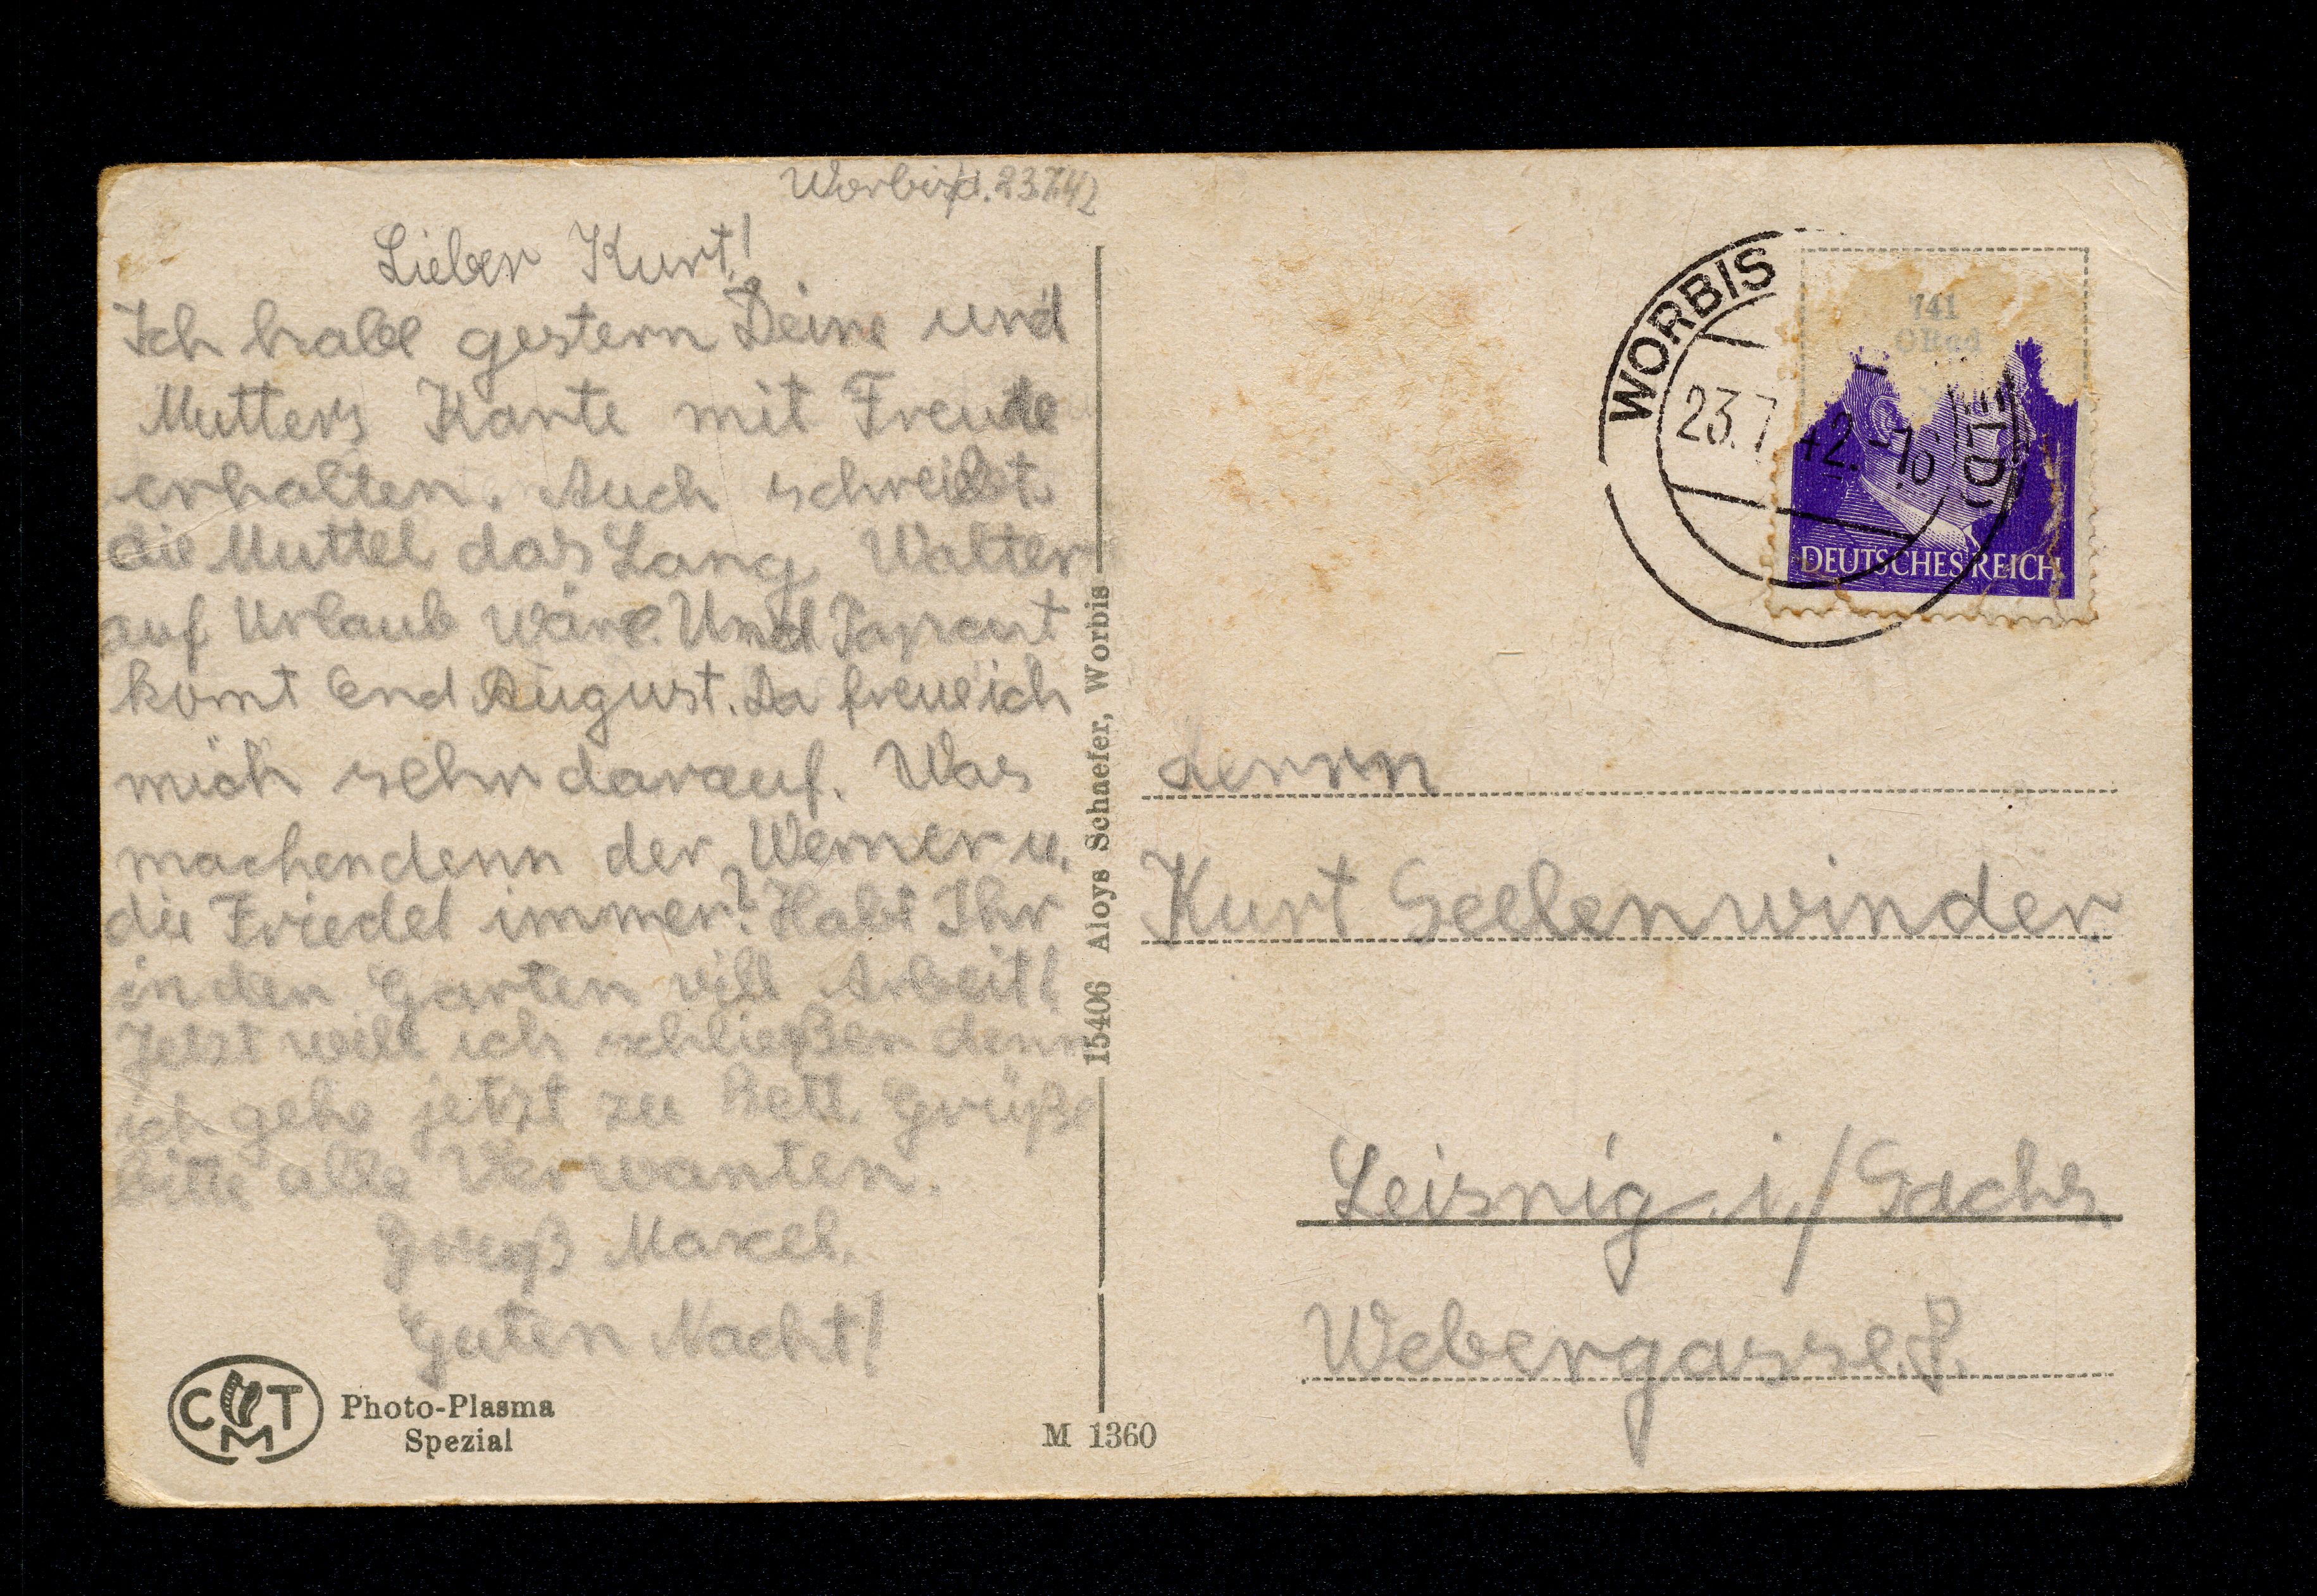 Worbis, d. 23.7.42
Lieber Kurt!
Ich habe gestern Deine und
Mutters Karte mit Freude
erhalten. Auch schreibt
die Muttel das Lang Walter
auf Urlaub wäre. Und
komt End August. Da freue ich
mich sehr darauf. Was
machen denn der Werner u.
die Friedel immer? Habt Ihr
in den Garten vill Arbeit!
Jetzt will ich schließen denn
ich gehe jetzt zu Bett. Grüße
bitte alle Verwanten.
Gruß
Guten Nacht!
C M T
Photo-Plasma
Spezial
15406 Aloys Schaefer, Worbis
M 1360
WORBIS
23.7.42.
741
DEUTSCHES REICH
Herrn
Kurt Seelenwinder
Leisnig i./Sachs.
Webergasse